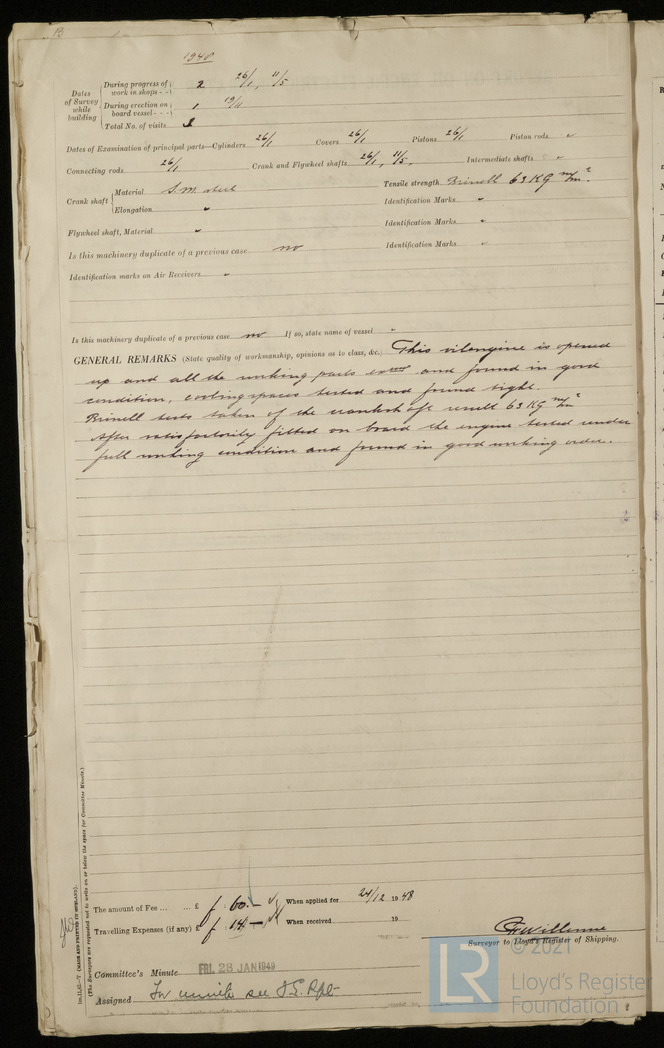 1948
Dates of Survey while building
During progress of work in shops - - 2 26/1, 11/5
During erection on board vessel - - - 1 19/11
Total No. of visits 3
Dates of Examination of principal parts—Cylinders 26/1 Covers 26/1 Pistons 26/1 Piston rods
Connecting rods 26/1 Crank and Flywheel shafts 26/1, 11/5. Intermediate shafts
Crank shaft Material S.M. steel Tensile strength Brinell 63 KG m/m²
Elongation " Identification Marks "
Flywheel shaft, Material " Identification Marks "
Is this machinery duplicate of a previous case no Identification Marks "
Identification marks on Air Receivers "
Is this machinery duplicate of a previous case no If so, state name of vessel "
GENERAL REMARKS (State quality of workmanship, opinions as to class, &c.) This oilengine is opened
up and all the working parts exam and found in good
condition, coolingspaces tested and found tight.
Brinell tests taken of the crankshaft result 63 KG m/m²
After satisfactorily fitted on board the engine tested under
full working condition and found in good working order.
1m.11,45—T (MADE AND PRINTED IN HOLLAND).
(The Surveyors are requested not to write on or below the space for Committee Minute.)
The amount of Fee ... ... £ f 60:— When applied for 24/12 1948
Travelling Expenses (if any) £ f 14:— When received 19
Surveyor to Lloyd's Register of Shipping.
Committee's Minute FRI. 28 JAN 1949
Assigned For minute see J.E. Rpt
© 2021
LR
Lloyd's Register
Foundation